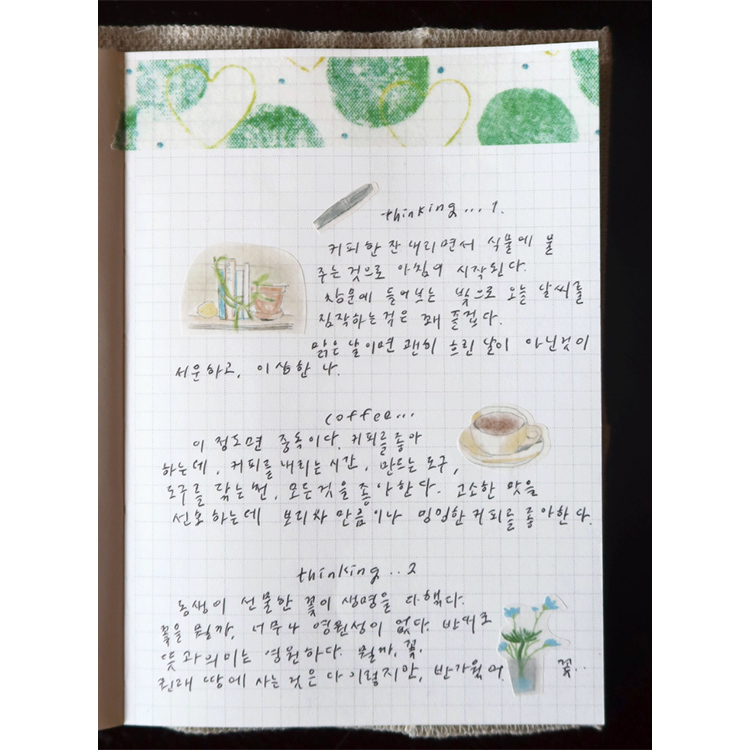 thinking... 1.
커피 한 잔 내리면서 식물에 물
주는 것으로 아침이 시작된다.
창문에 들어보는 빛으로 오늘 날씨를
짐작하는 것은 꽤 즐겁다.
맑은 날이면 괜히 흐린 날이 아닌것이
서운하고, 이상한 나.
coffee...
이 정도면 중독이다. 커피를 좋아
하는데, 커피를 내리는 시간, 만드는 도구,
도구를 닦는 천, 모든것을 좋아한다. 고소한 맛을
선호하는데 보리차 만큼이나 밍밍한 커피를 좋아한다.
thinking.. 2
동생이 선물한 꽃이 생명을 다했다.
꽃은 뭘까, 너무나 영원성이 없다. 반대로
뜻과 의미는 영원하다. 뭘까, 꽃.
원래 땅에 사는 것은 다 이렇지만, 반가웠어. 꽃..